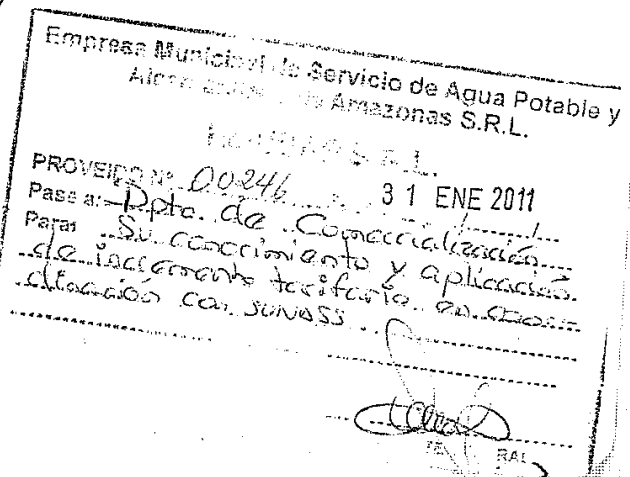 Empresa Municipal de Servicio de Agua Potable y
Amazonas S.R.L.
S.R.L.
PROVEIDO Nº 00246 31 ENE 2011
Pase a: Dpto. de Comercialización
Para: Su conocimiento y aplicación
de incremento tarifario en coor-
dinación con SUNASS